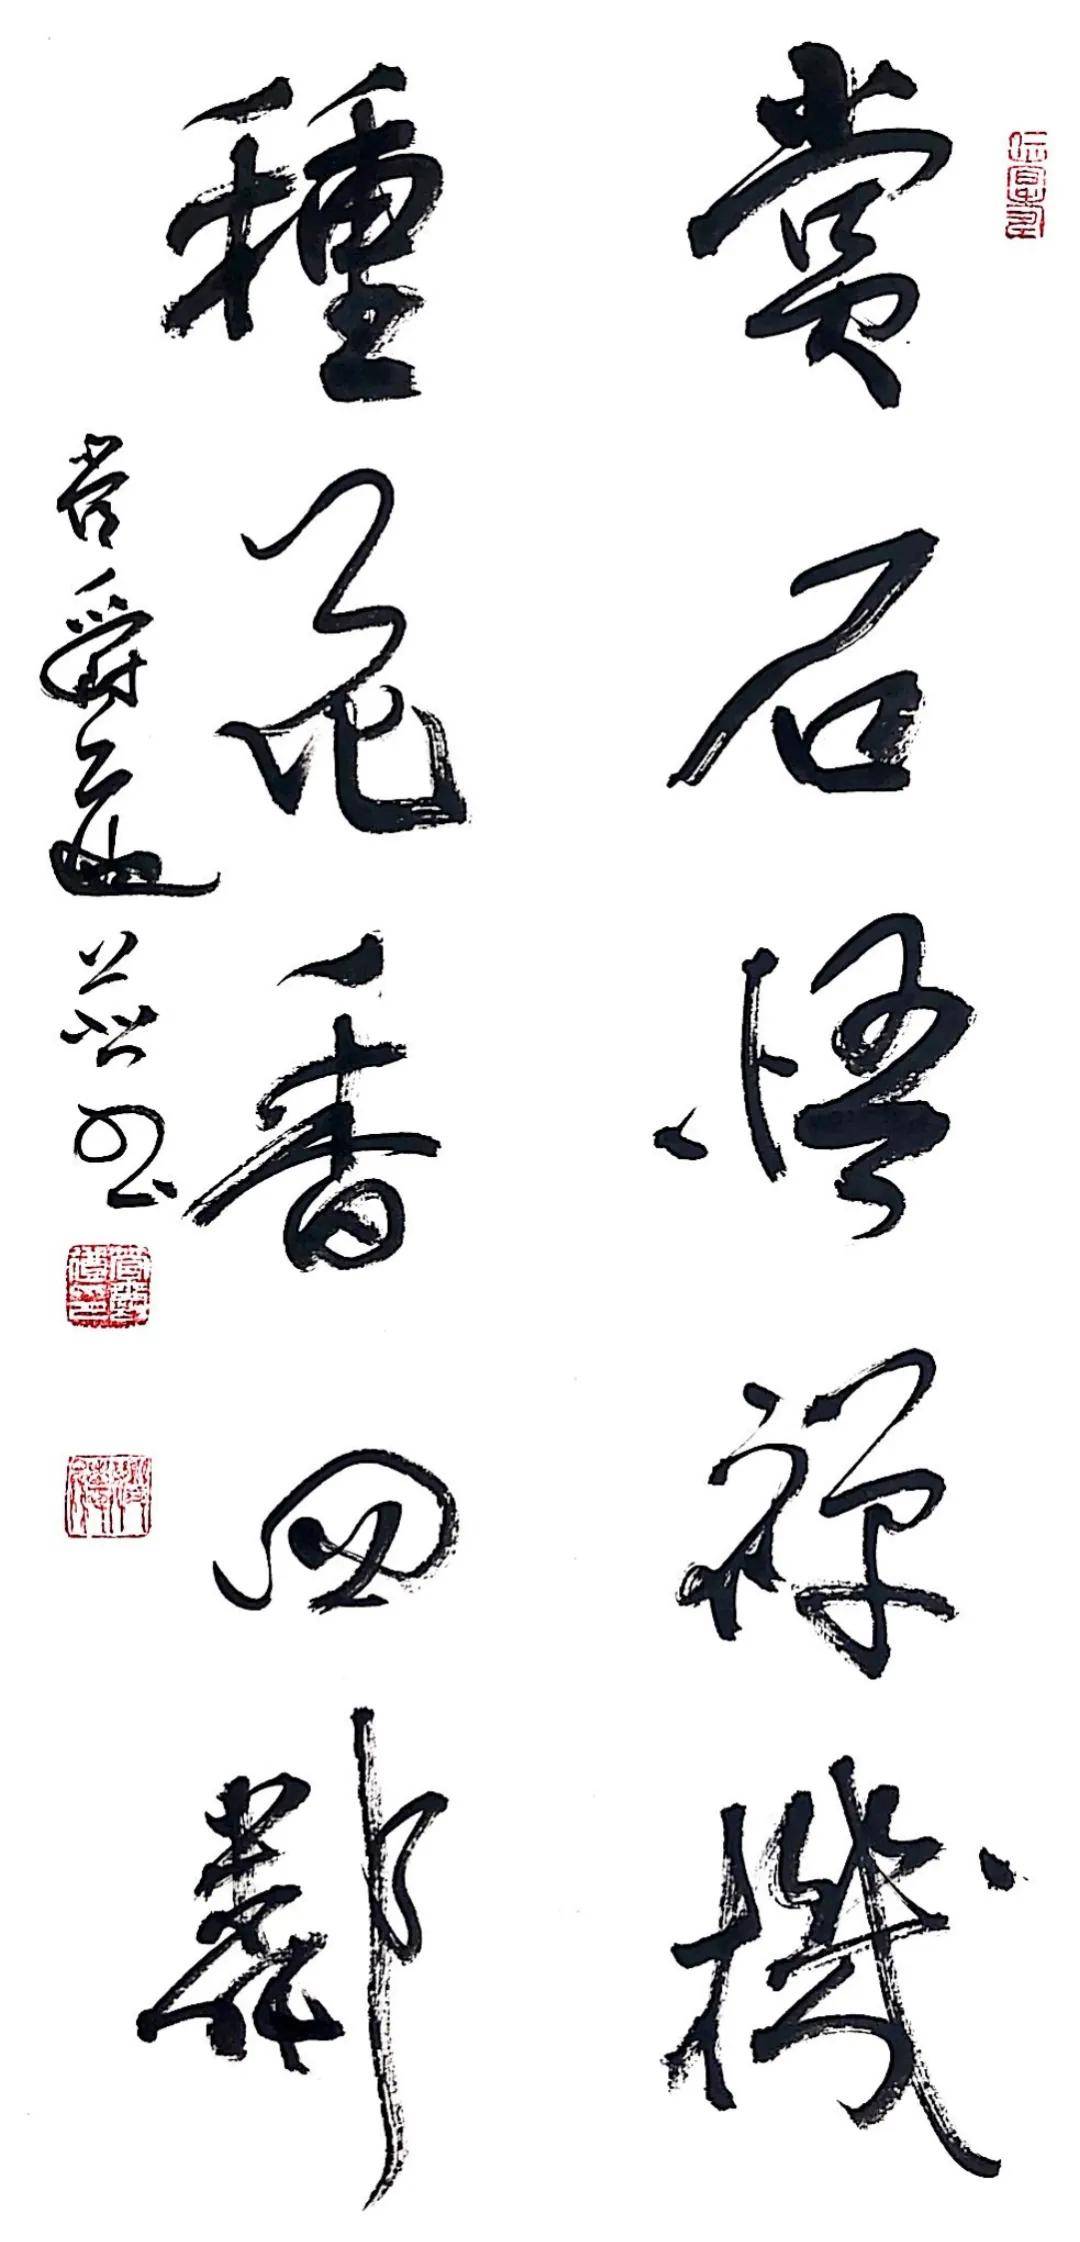 賞石悟禪機
種花香四鄰